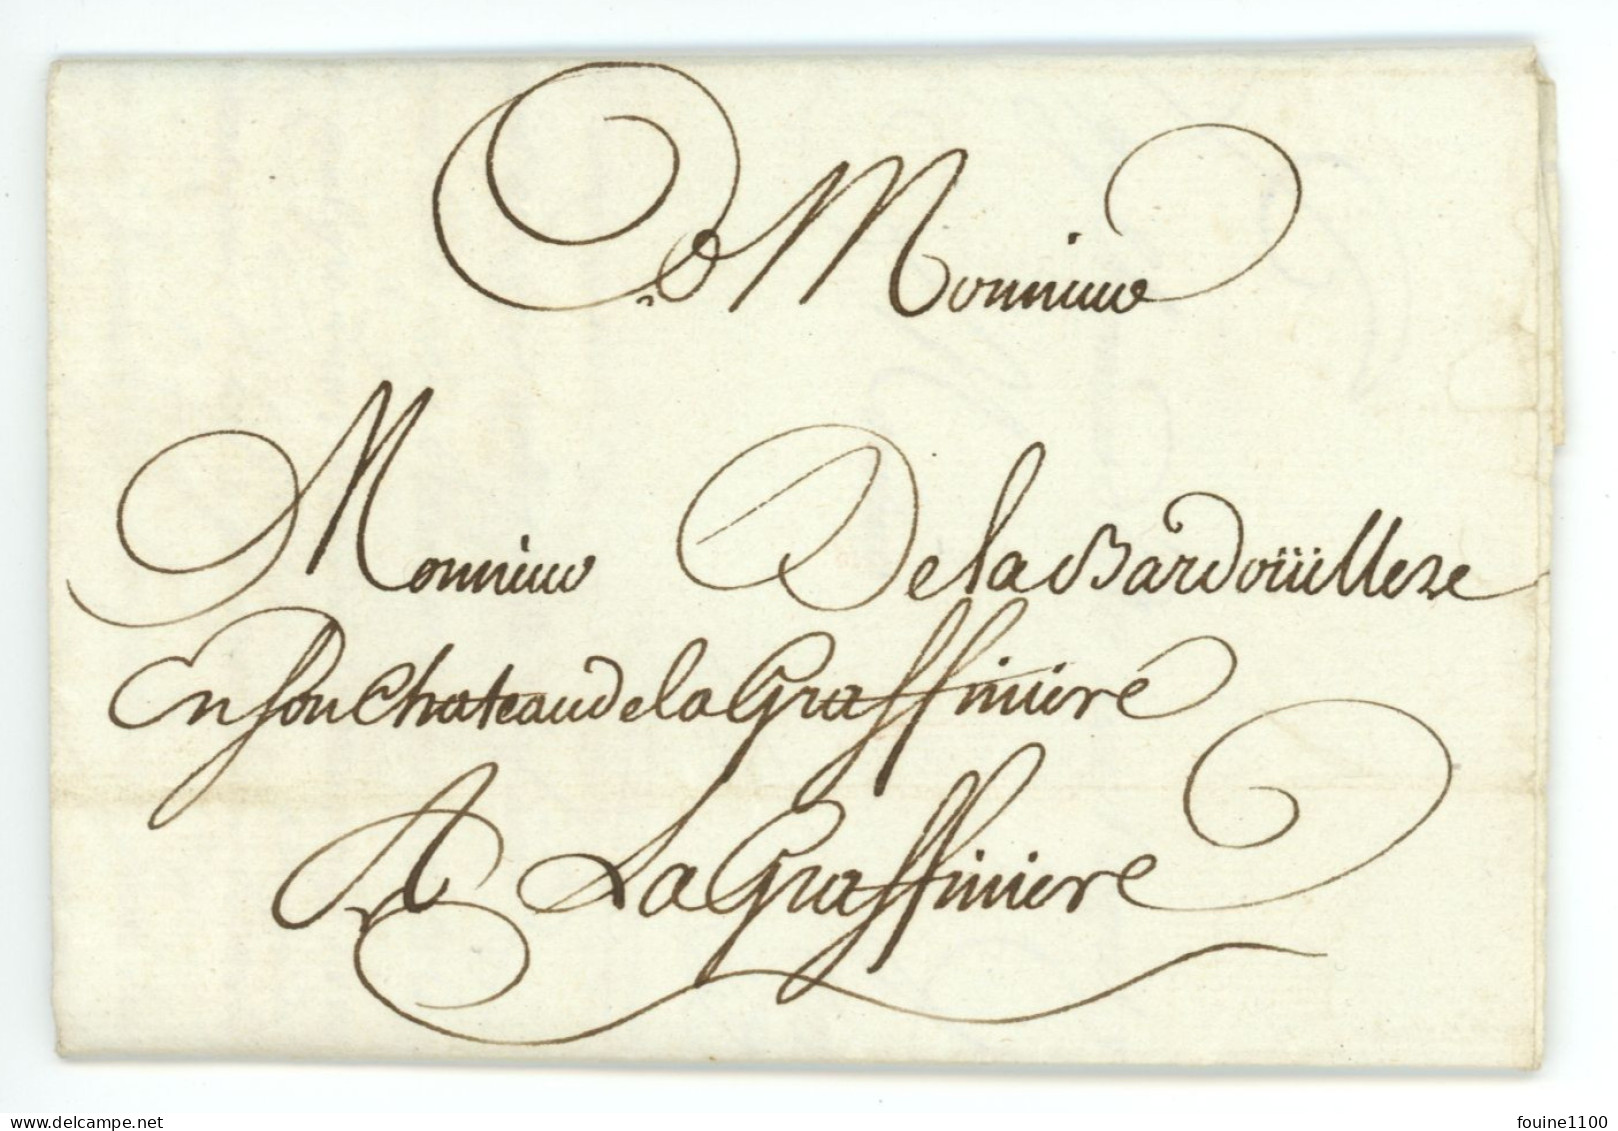 A Monsieur
Monsieur De la Bardoüillere
En son Chateau de la Graffiniere
A La Graffiniere
www.delcampe.net
fouine1100